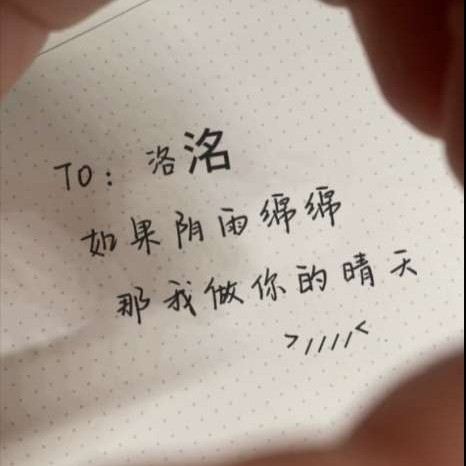 TO：洛洺
如果阴雨绵绵
那我做你的晴天
>////<